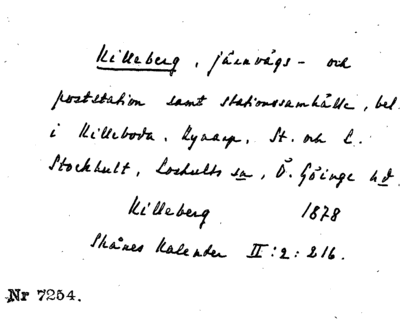 Killeberg, järnvägs- och
poststation samt stationssamhälle, bel.
i Killeboda, Hynarp, St. och L.
Stockhult, Loshults sn, Ö. Göinge hd.
Killeberg 1878
Skånes Kalender II:2:216.
Nr 7254.